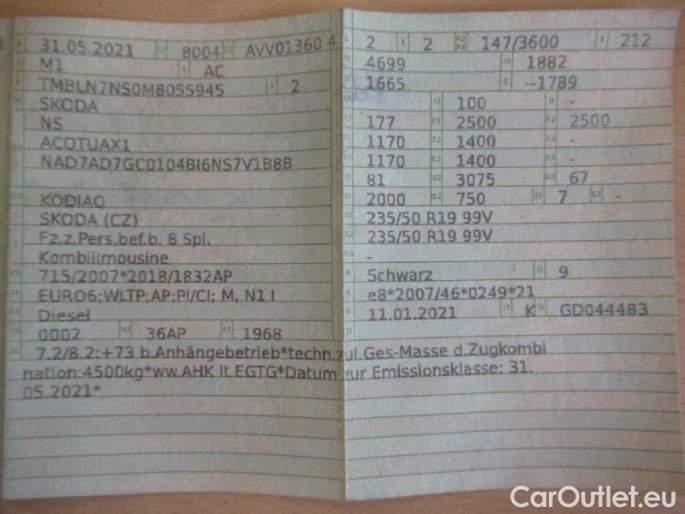 31.05.2021 8004 AVV01360 4
M1 AC
TMBLN7NS0M8055945 2
SKODA
NS
ACDTUAX1
NAD7AD7GC0104BI6NS7V1B8B
KODIAQ
SKODA (CZ)
Fz.z.Pers.bef.b. 8 Spl.
Kombilimousine
715/2007*2018/1832AP
EURO6;WLTP;AP;PI/CI; M, N1 I
Diesel
0002 36AP 1968
2 2 147/3600 212
4699 1882
1665 --1789
100 -
177 2500 2500
1170 1400
1170 1400 -
81 3075 67
2000 750 7 -
235/50 R19 99V
235/50 R19 99V
-
Schwarz 9
e8*2007/46*0249*21
11.01.2021 K GD044483
7.2/8.2:+73 b.Anhängebetrieb*techn.zul.Ges-Masse d.Zugkombi
nation:4500kg*ww.AHK lt.EGTG*Datum zur Emissionsklasse: 31.
05.2021*
CarOutlet.eu